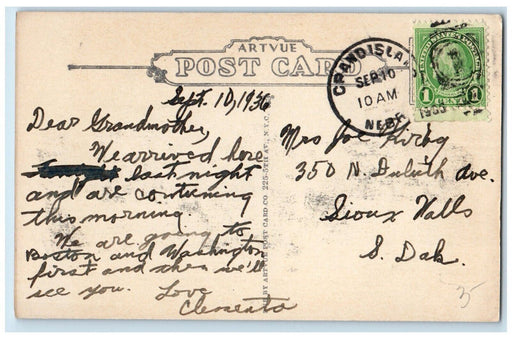 ARTVUE
POST CARD
GRAND ISLAND
SEP 10
10 AM
NEBR.
UNITED STATES POSTAGE
1 CENT 1
Sept. 10, 1936
Dear Grandmother,
We arrived here
last night
and are continuing
this morning.
We are going to
Boston and Washington
first and then we'll
see you. Love
BY ARTVUE POST CARD CO. 225-5TH AV., N.Y.C.
Mrs Joe Kirby
350 N. Duluth Ave.
Sioux Falls
S. Dak.